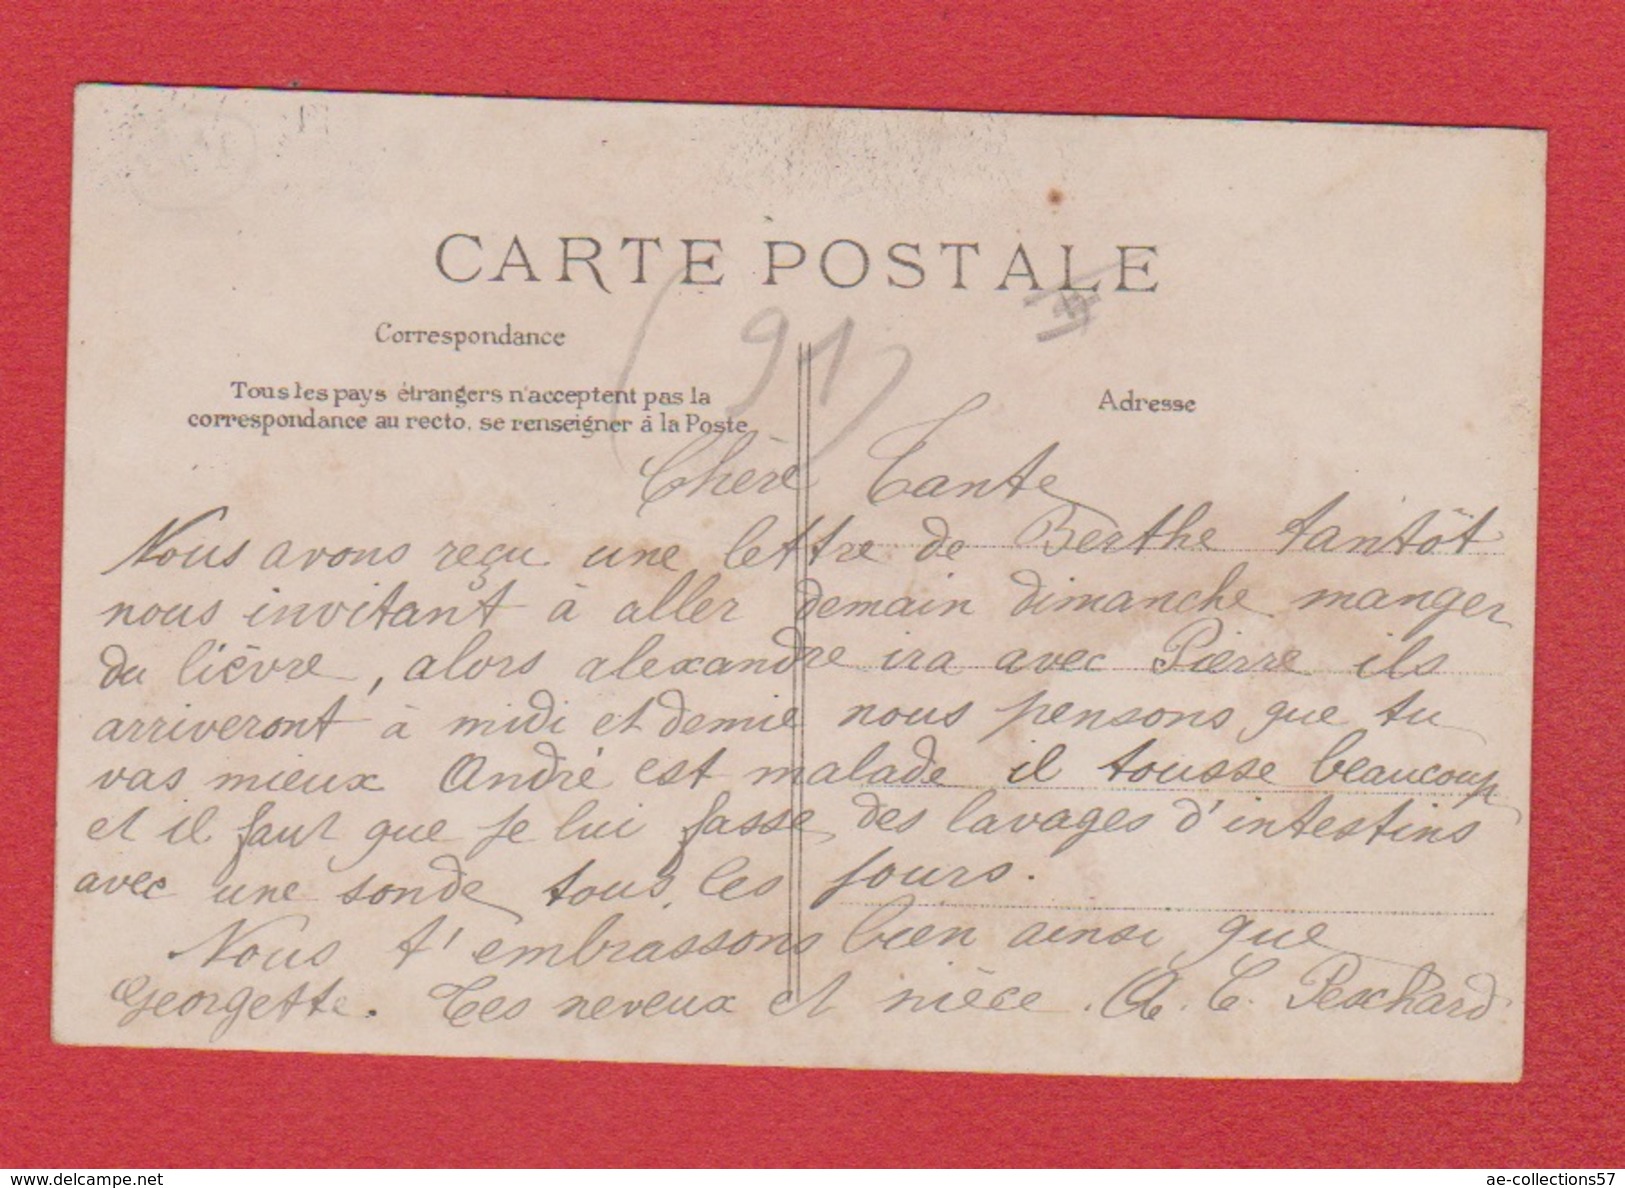 CARTE POSTALE
Correspondance
(91)
Tous les pays étrangers n'acceptent pas la
correspondance au recto, se renseigner à la Poste
Adresse
Chère Tante
Nous avons reçu une lettre de Berthe tantôt
nous invitant à aller demain dimanche manger
du lièvre, alors alexandre ira avec Pierre ils
arriveront à midi et demie nous pensons que tu
vas mieux André est malade il tousse beaucoup
et il faut que je lui fasse des lavages d'intestins
avec une sonde tous les jours.
Nous t'embrassons bien ainsi que
Georgette. Tes neveux et nièce. A. C. Peschard
www.delcampe.net
ae-collections57